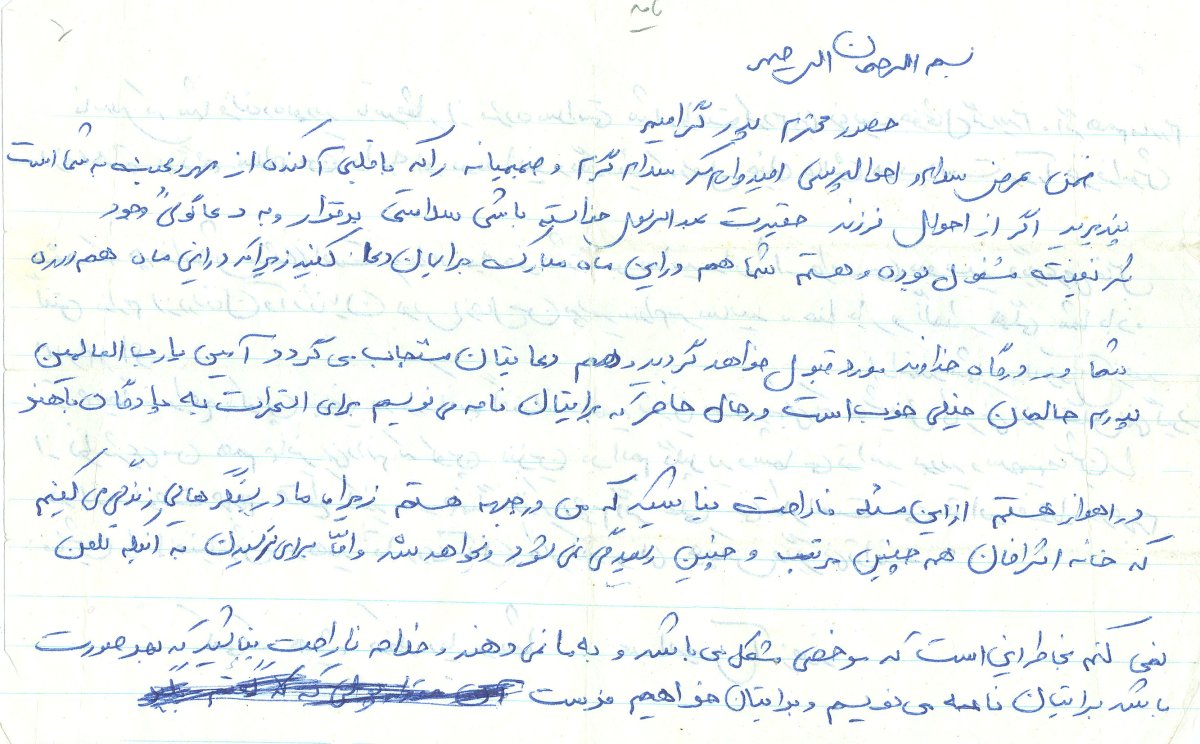 نامه
بسم الله الرحمن الرحیم
حضور محترم پدر گرامیم
ضمن عرض سلام و احوالپرسی امیدوارم که سلام گرم و صمیمیانه را که با قلبی آکنده از مهر و محبت به شما است
بپذیرید اگر از احوال فرزند حقیرت عبدالرسول خواسته باشی سلامتی برقرار و به دعاگوئی وجود
پر نعمت مشغول بوده و هستم شما هم در این ماه مبارک برایمان دعا کنید زیرا که در این ماه هم روزه
شما در درگاه خداوند مورد قبول خواهد گردید و هم دعایتان مستجاب می گردد آمین یا رب العالمین
پدرم حالمان خیلی خوب است در حال حاضر که برایتان نامه می نویسم برای استراحت به پادگان
در اهواز هستم از این مسئله ناراحت نباشید که من در جبهه هستم زیرا ما در سنگرهایی زندگی می کنیم
که خانه اشرافان همه چنین مرتب و چنین رسیدگی نمی شود و نخواهد شد و امّا برای نرسیدن به اینکه تلفن
نمی کنم بخاطر این است که مرخصی مشکل می باشد و به ما نمی دهند و خلاصه ناراحت نباشید که بهر صورت
باشد برایتان نامه می نویسم و برایتان خواهیم فرست